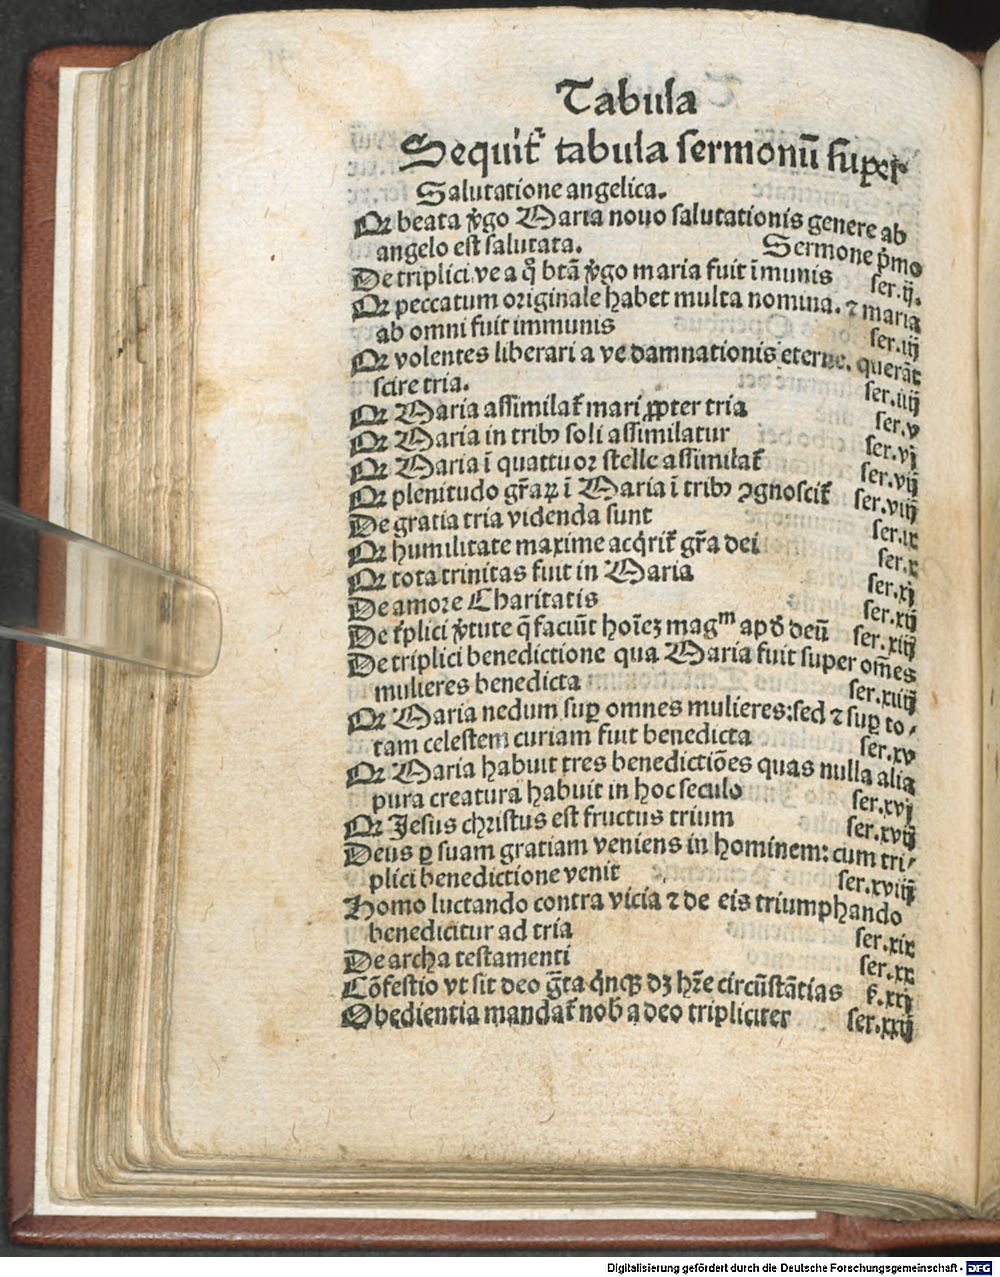 Tabula
Sequit᷑ tabula sermonū super
Salutatione angelica.
Qꝛ beata v̓go Maria nouo salutationis genere ab
angelo est salutata. Sermone p̓mo
De triplici ve a q̊ btā v̓go maria fuit īmunis ser.ij.
Qꝛ peccatum originale habet multa nomina. ⁊ maria
ab omni fuit immunis ser.iij
Qꝛ volentes liberari a ve damnationis eterne. querāt
scire tria. ser.iiij
Qꝛ Maria assimilat᷑ mari ꝓpter tria ser.v
Qꝛ Maria in tribꝰ soli assimilatur ser.vj
Qꝛ Maria ī quattuor stelle assimilat᷑ ser.vij
Qꝛ plenitudo gr̄aꝝ ī Maria ī tribꝰ ꝯgnoscit᷑ ser.viij
De gratia tria videnda sunt ser.ix
Qꝛ humilitate maxime acq̓rit᷑ gr̄a dei ser.x
Qꝛ tota trinitas fuit in Maria ser.xj
De amore Charitatis ser.xij
De t̓plici v̓tute q̄ faciūt hoīeꝫ magᵐ apð deū ser.xiij
De triplici benedictione qua Maria fuit super om̄es
mulieres benedicta ser.xiiij
Qꝛ Maria nedum suꝑ omnes mulieres:sed ⁊ suꝑ to⸗
tam celestem curiam fuit benedicta ser.xv
Qꝛ Maria habuit tres benedictiōes quas nulla alia
pura creatura habuit in hoc seculo ser.xvj
Qꝛ Jesus christus est fructus trium ser.xvij
Deus ꝑ suam gratiam veniens in hominem: cum tri⸗
plici benedictione venit ser.xviij
Homo luctando contra vicia ⁊ de eis triumphando
benedicitur ad tria ser.xix
De archa testamenti ser.xx
Cōfessio vt sit deo ḡta q̓nqꝫ dꝫ hr̄e circūstātias s̓.xxj
Obedientia mandat᷑ nob̓ a deo tripliciter ser.xxij
Digitalisierung gefördert durch die Deutsche Forschungsgemeinschaft - DFG